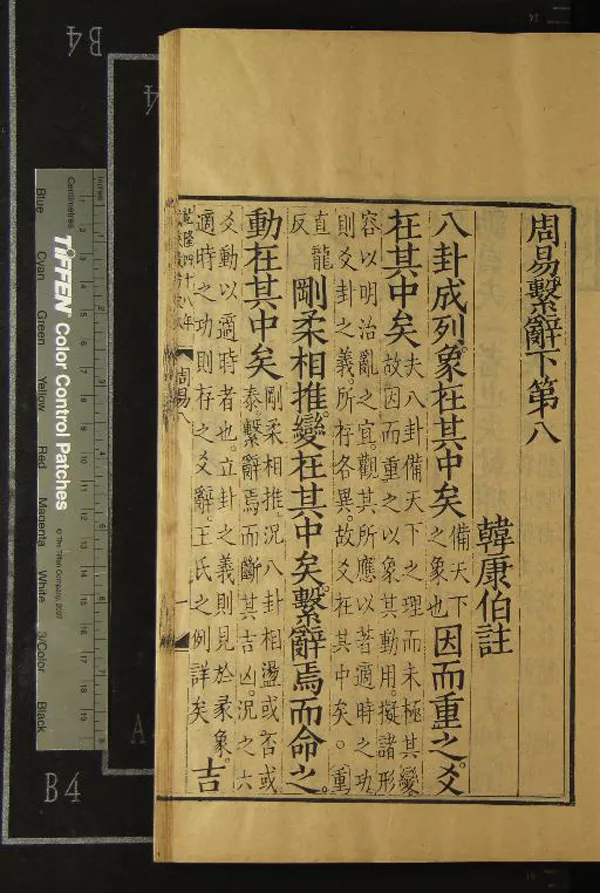 周易繫辭下第八
韓康伯註
八卦成列。象在其中矣備天下
之象也因而重之。爻
在其中矣夫八卦備天下之理而未極其變
故因而重之以象其動用。擬諸形
容以明治亂之宜。觀其所應以著適時之功
則爻卦之義。所存各異。故爻在其中矣。重
直龍
反剛柔相推。變在其中矣。繫辭焉而命之。
動在其中矣剛柔相推。況八卦相盪或否或
泰。繫辭焉而斷其吉凶。況之六
爻動以適時者也。立卦之義則見於彖象。
適時之功則存之爻辭。王氏之例詳矣吉
乾隆四十八年
周易八
一
TIFFEN Color Control Patches
© The Tiffen Company, 2007
Centimetres
Inches
Blue
Cyan
Green
Yellow
Red
Magenta
White
3/Color
Black
B4
B4
A